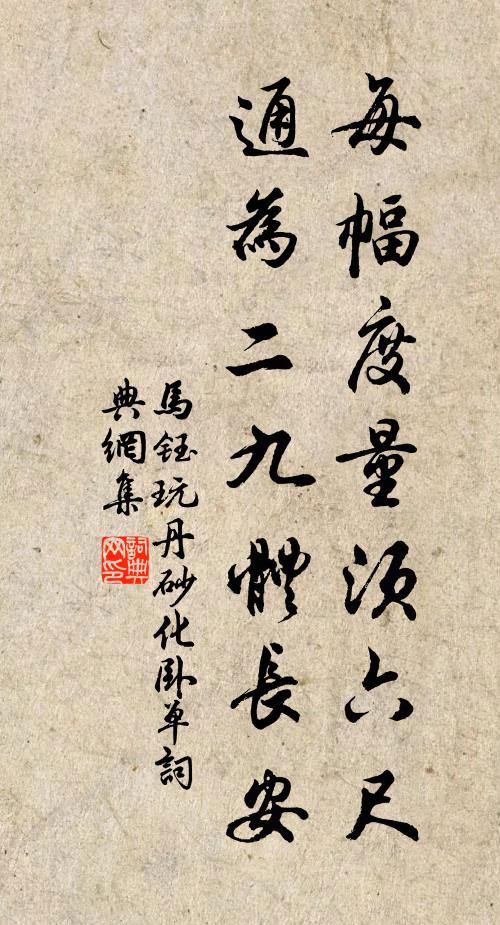 每幅度量須六尺
通為二九體長安
馬鈺玩丹砂化卧单詞
典網集
詞典網印